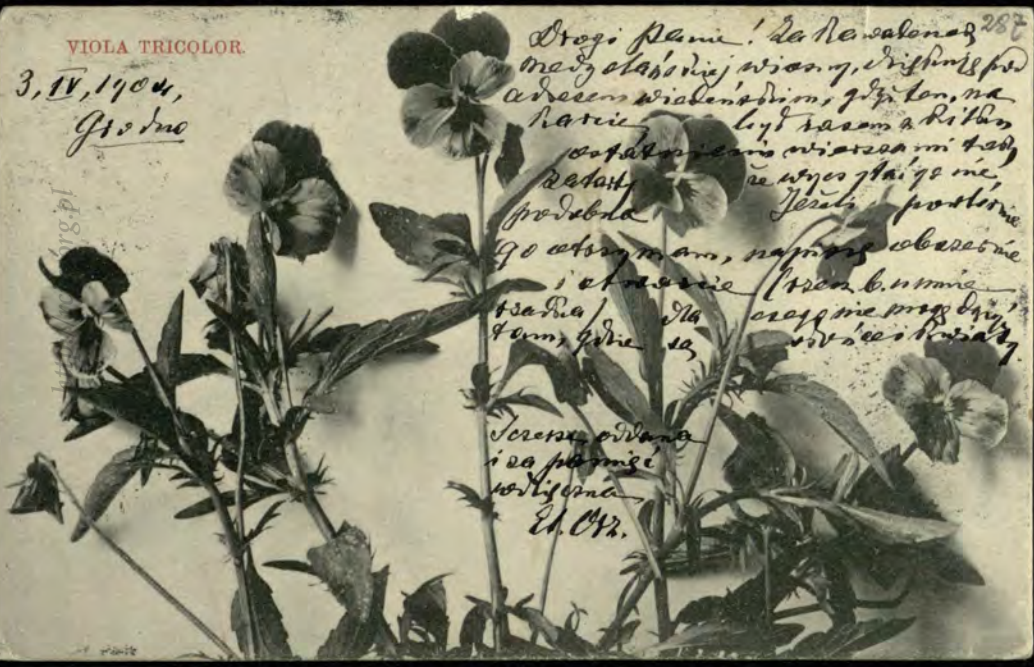 VIOLA TRICOLOR.
287
3, IV, 1904,
Grodno
Drogi Panie! Za kawałeczek
wiosny, dziękuję pod
adresem wiedeńskim, gdyż ten, na
karcie był razem z kilku
ostatniemi wierszami tak
zatarty że wyczytać go nie
podobna Jeżeli powtórnie
go otrzymam, napiszę obszernie
i otwarcie
rzadka dla czego nie mogę być
tam, gdzie są słońce i kwiaty.
Szczerze oddana
i za pamięć
wdzięczna
El. Orz.